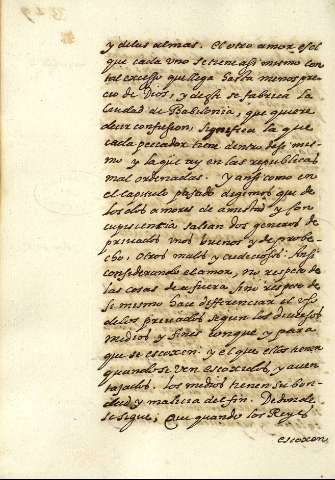 y de las almas. El otro amor es el
que cada uno se tiene assi mismo con
tal excesso que llega hasta menospre
cio de Dios, y desse se fabrica la
Ciudad de Babilonia, que quiere
decir confussion, significa la que
cada peccador tiene dentro dessi mes
mo y la que ay en las republicas
mal ordenadas. y anssi como en
el capitulo pasado degimos que de
los dos amores de amistad y con
cupiscentia salian dos generos de
privados unos buenos y de proba
cho. otros malos y cudiciosos. Anssi
considerando el amor, no respeto de
las cosas de afuera, sino respeto de
si mismo hace differenciar el uso
de los privados segun los diversos
medios y fines conque y para
que se escoxen, y el que ellos tienen
quando se ven escoxidos, y aven
tajados. los medios tienen su bon
dad y malicia del fin. De donde
se sigue, Que quando los Reyes
escoxen